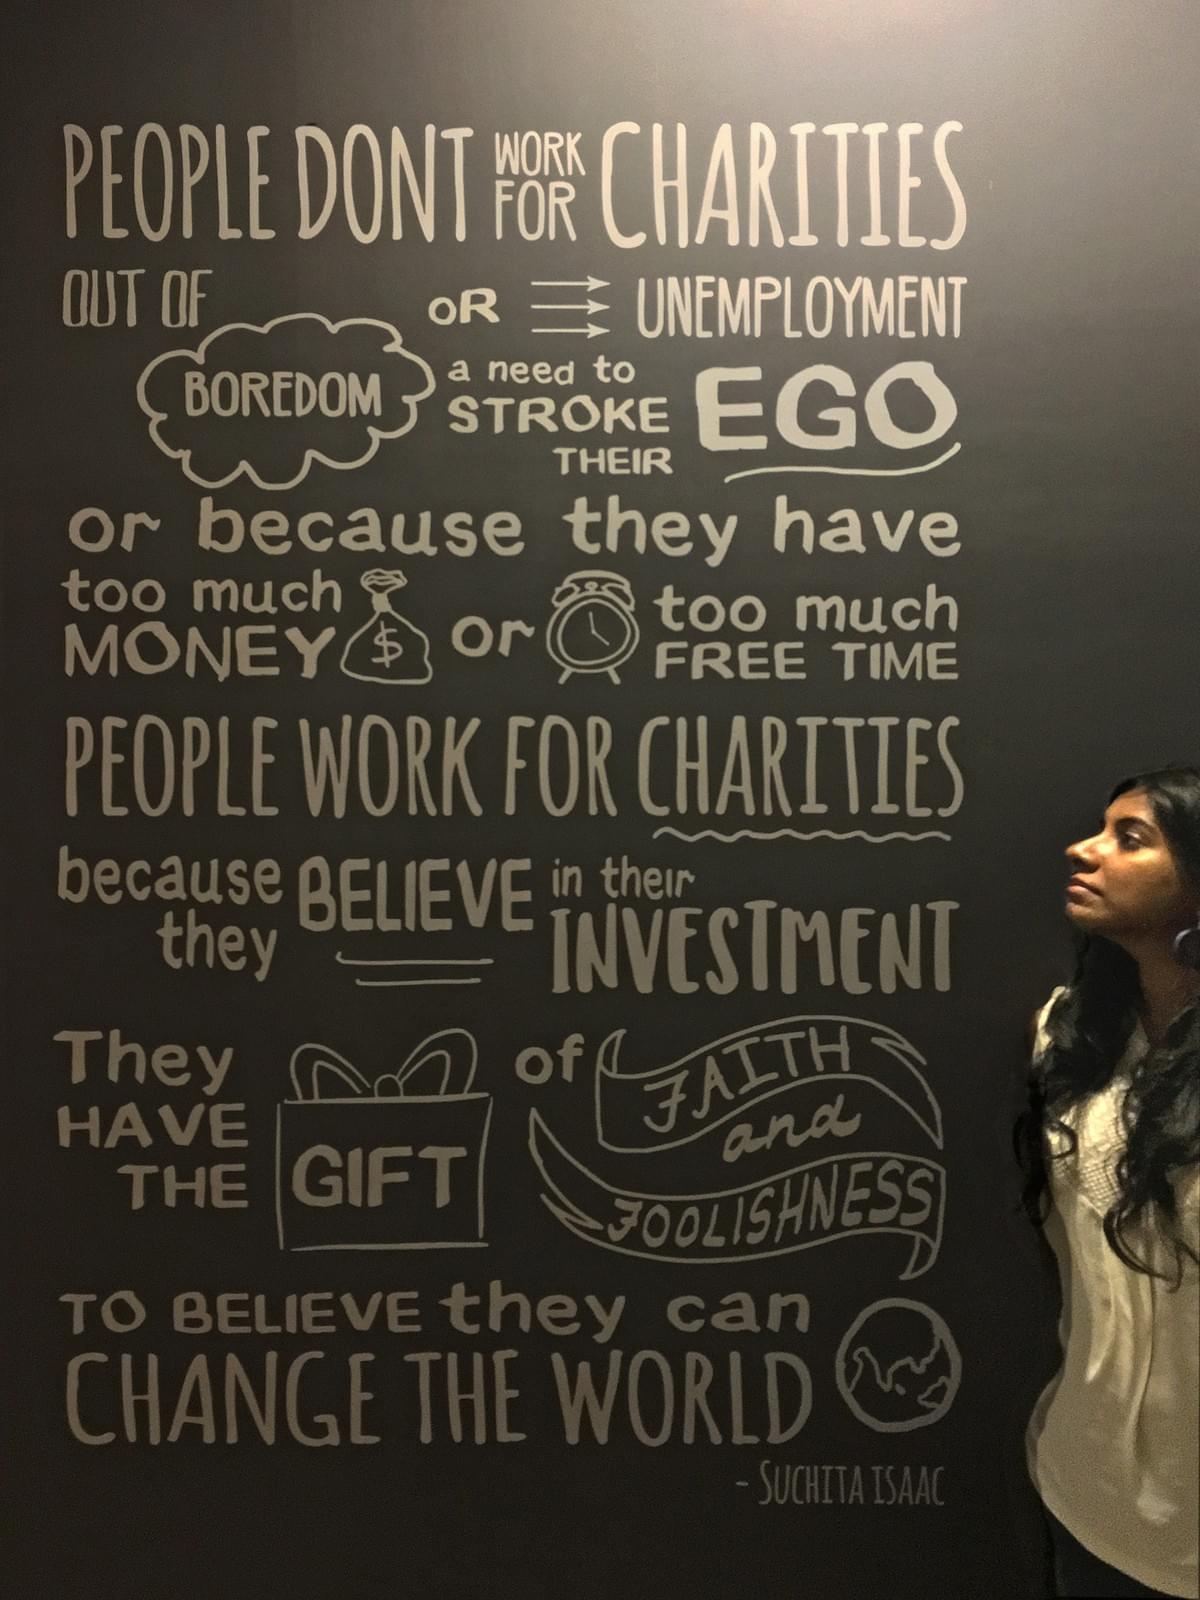 PEOPLE DONT WORK FOR CHARITIES
OUT OF BOREDOM OR UNEMPLOYMENT
a need to STROKE THEIR EGO
or because they have
too much MONEY or too much FREE TIME
PEOPLE WORK FOR CHARITIES
because they BELIEVE in their INVESTMENT
They HAVE THE GIFT of FAITH and FOOLISHNESS
TO BELIEVE they can
CHANGE THE WORLD
- SUCHITA ISAAC